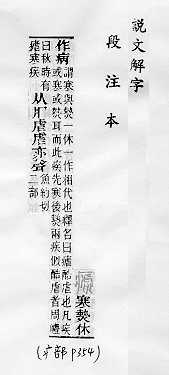 說文解字
段注本
寒熱休
作病
謂寒與熱一休一作相代也釋名曰瘧酷虐也凡疾
或寒或熱耳而此疾先寒後熱兩疾似酷虐者周禮
曰秋時有
瘧寒疾
从疒虐虐亦聲
魚約切
二部
(疒部 P354)